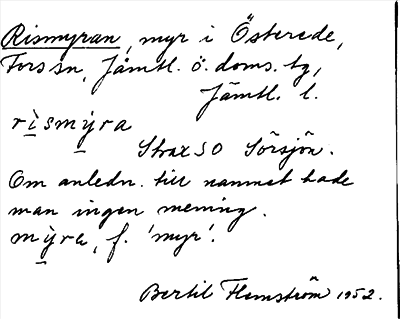 Rismyran, myr i Österede,
Fors sn, Jämtl. ö. doms. tg,
Jämtl. l.
rìsmyra
Strax SO Sörsjön.
Om anledn. till namnet hade
man ingen mening.
mỳra, f. 'myr'.
Bertil Flemström 1952.